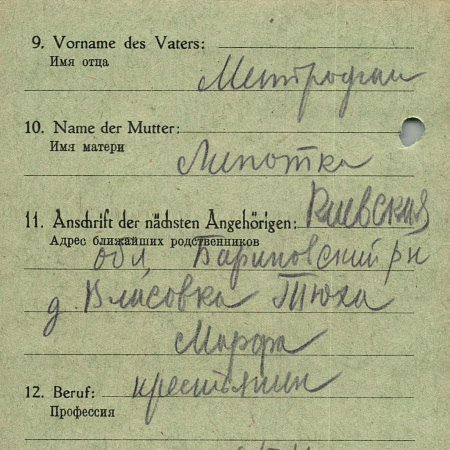 9. Vorname des Vaters:
Имя отца
Метрофан
10. Name der Mutter:
Имя матери
Липотка
11. Anschrift der nächsten Angehörigen: Киевская
Адрес ближайших родственников
обл Бариповский рн
д. Власовка Тюха
Марфа
12. Beruf: крестьянин
Профессия